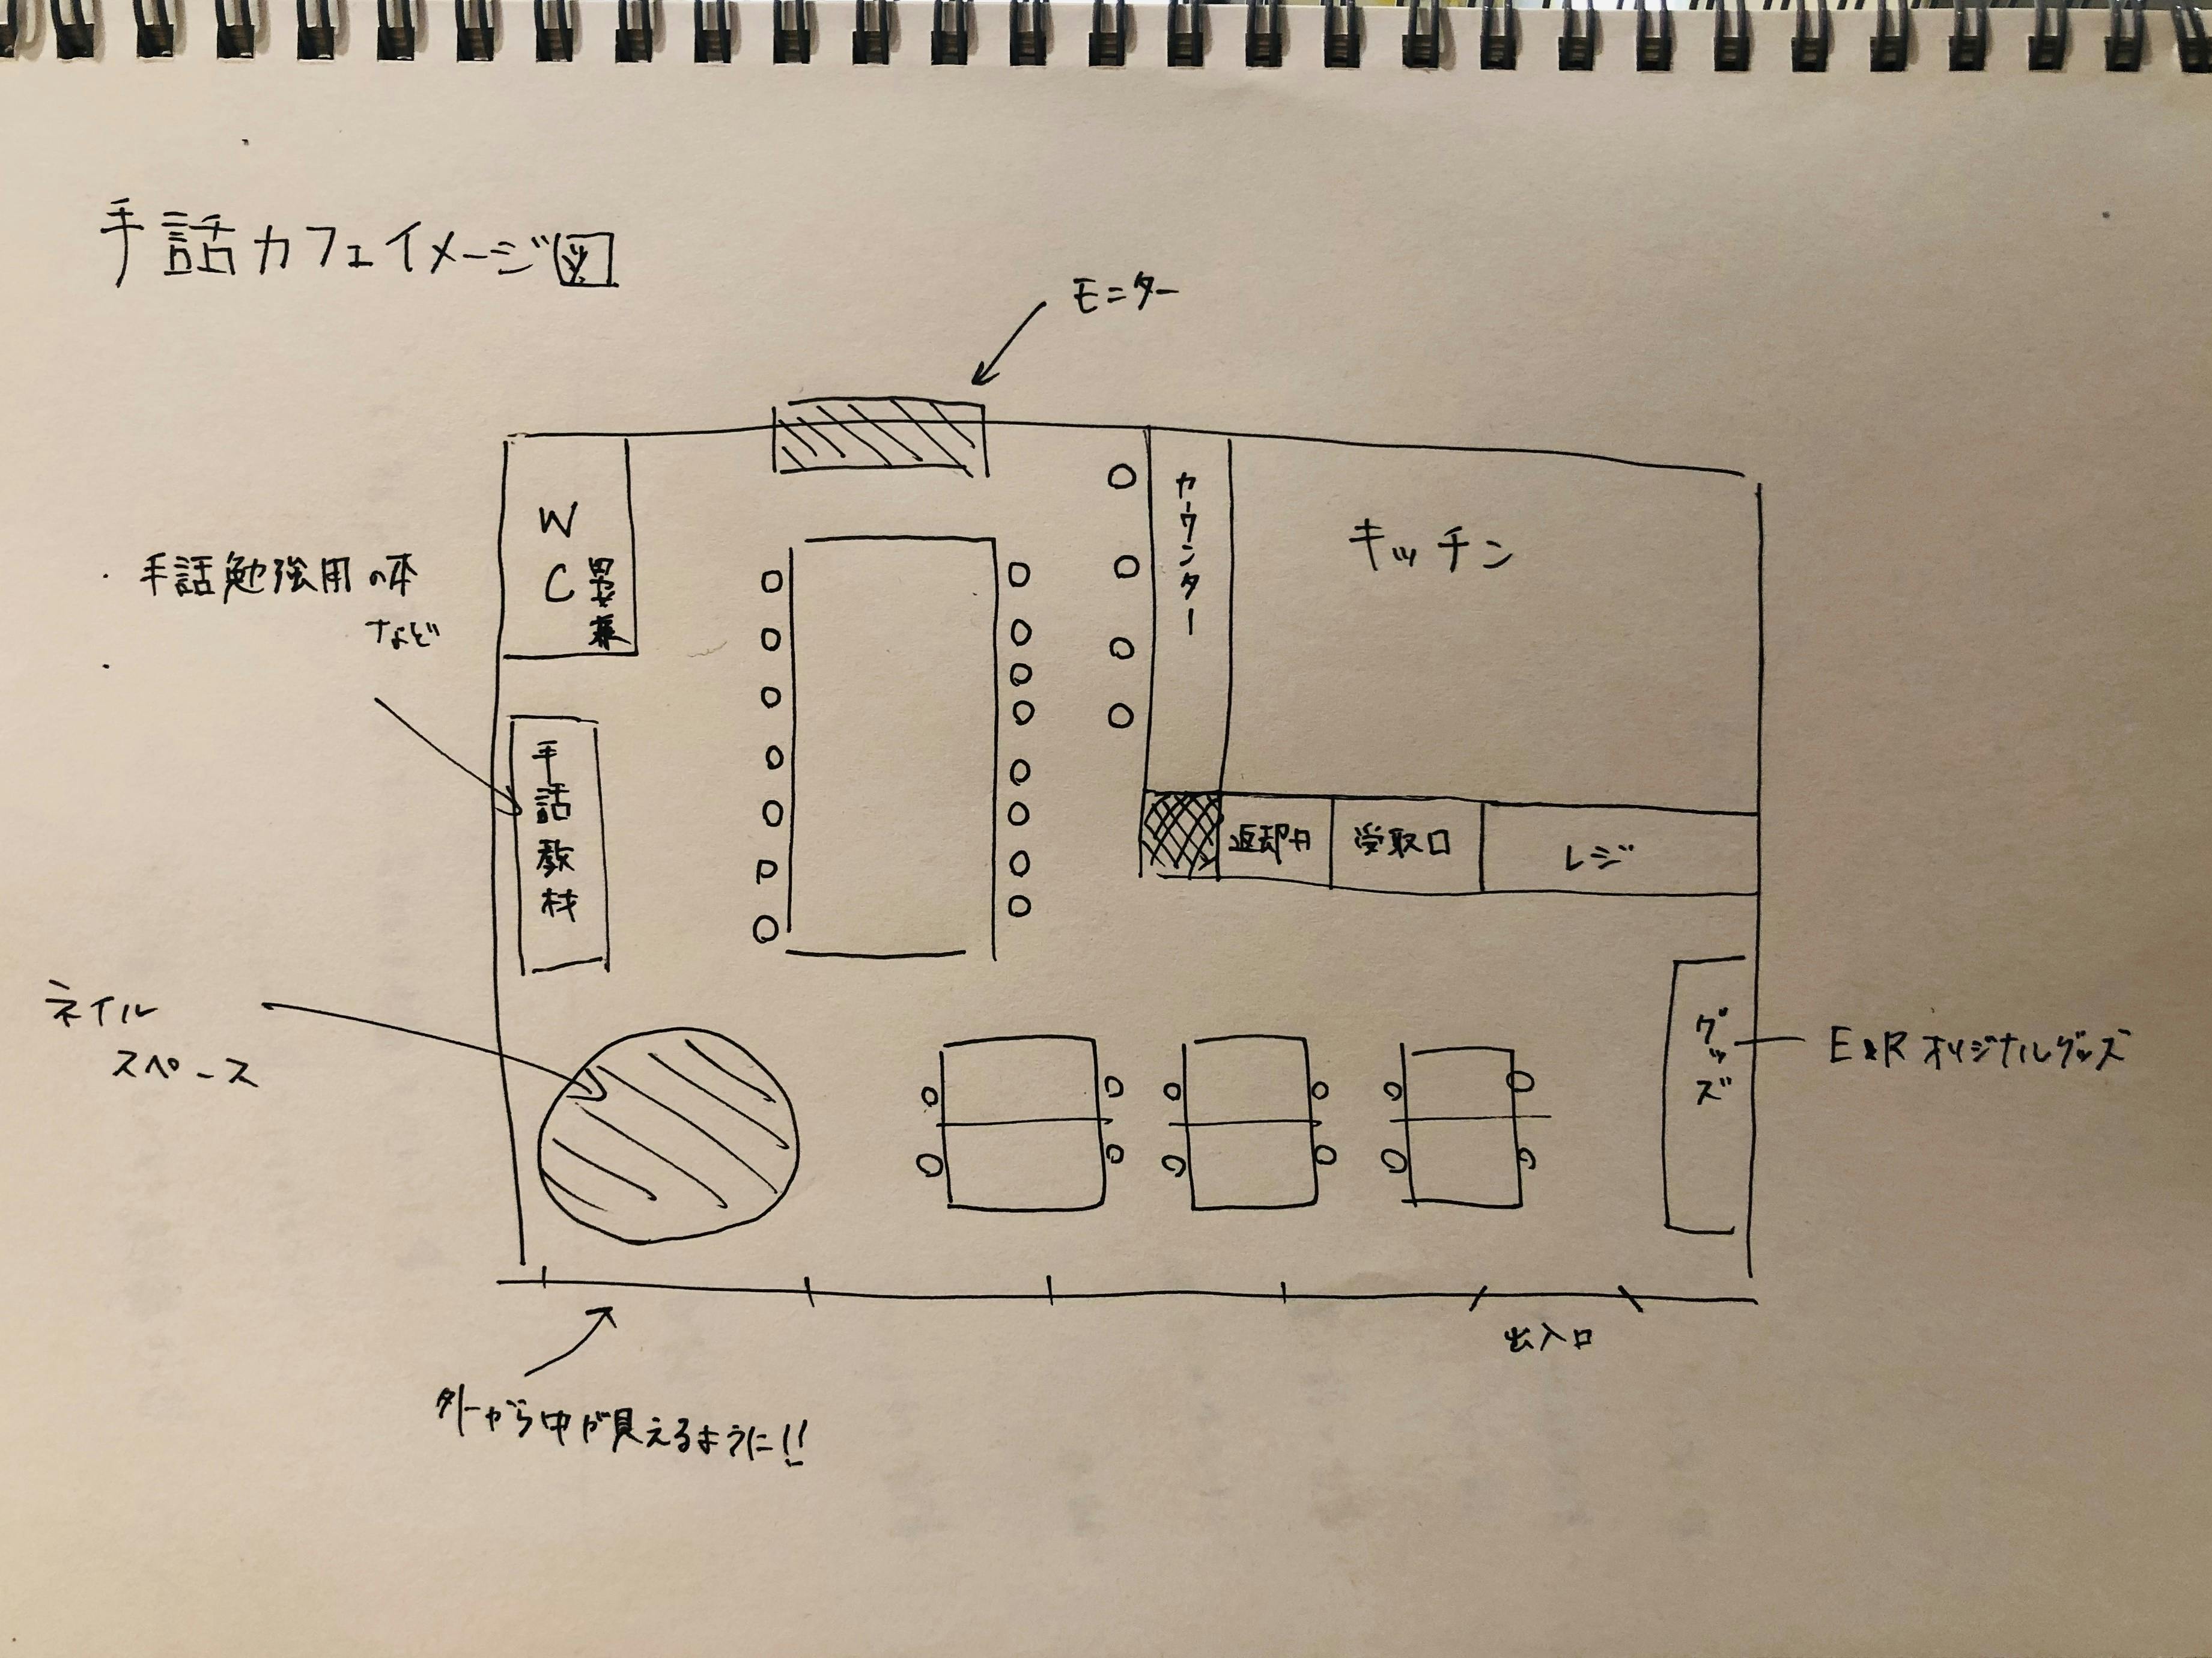 手話カフェイメージ図
モニター
WC
カウンター
キッチン
手話勉強用の本
など
手話教材
返却口
受取口
レジ
ネイル
スペース
グッズ
E&Rオリジナルグッズ
出入口
外から中が見えるように!!